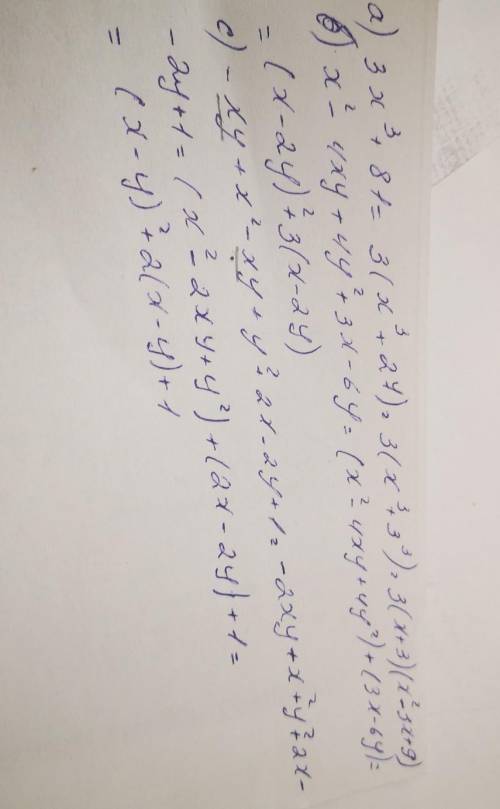 a) 3x³ + 81 = 3(x³ + 27) = 3(x³ + 3³) = 3(x+3)(x²-3x+9)
б) x² - 4xy + 4y² + 3x - 6y = (x² - 4xy + 4y²) + (3x - 6y) =
= (x - 2y)² + 3(x - 2y)
c) - xy + x² - xy + y² + 2x - 2y + 1 = - 2xy + x² + y² + 2x -
- 2y + 1 = (x² - 2xy + y²) + (2x - 2y) + 1 =
= (x - y)² + 2(x - y) + 1